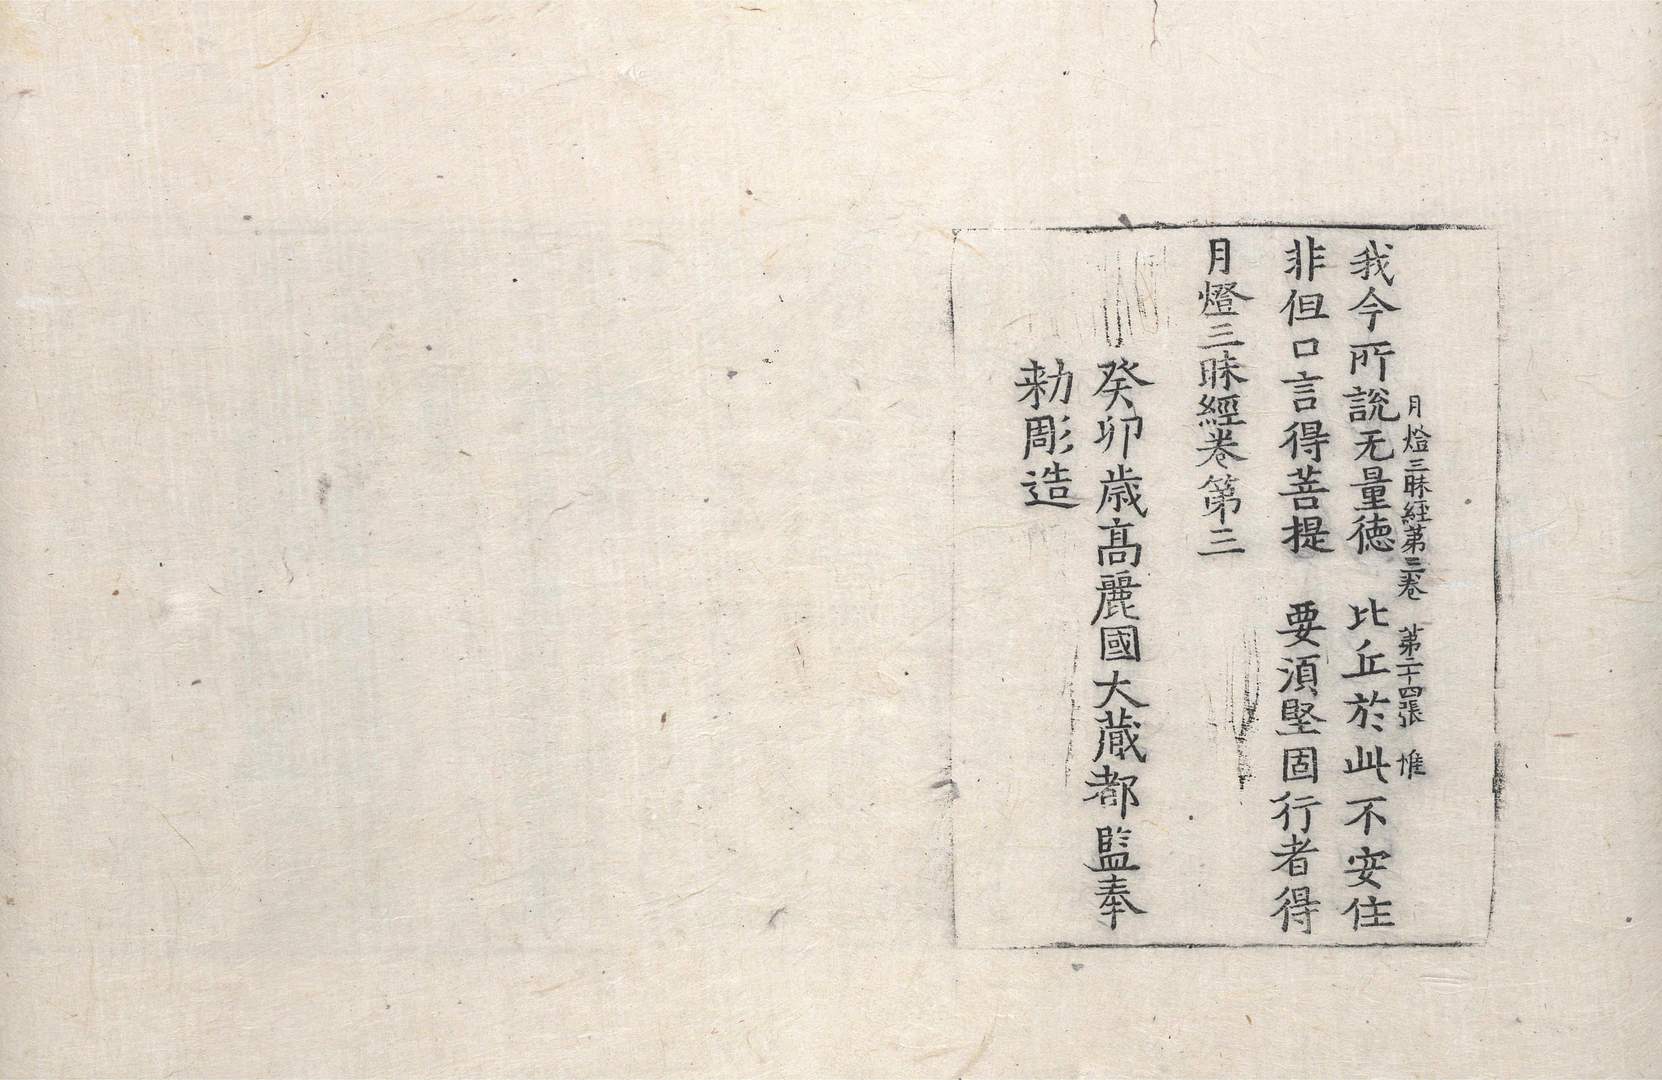 月燈三昧經第三卷　第二十四張　惟
我今所說无量德　比丘於此不安住
非但口言得菩提　要須堅固行者得
月燈三昧經卷第三
癸卯歲高麗國大藏都監奉
勑彫造